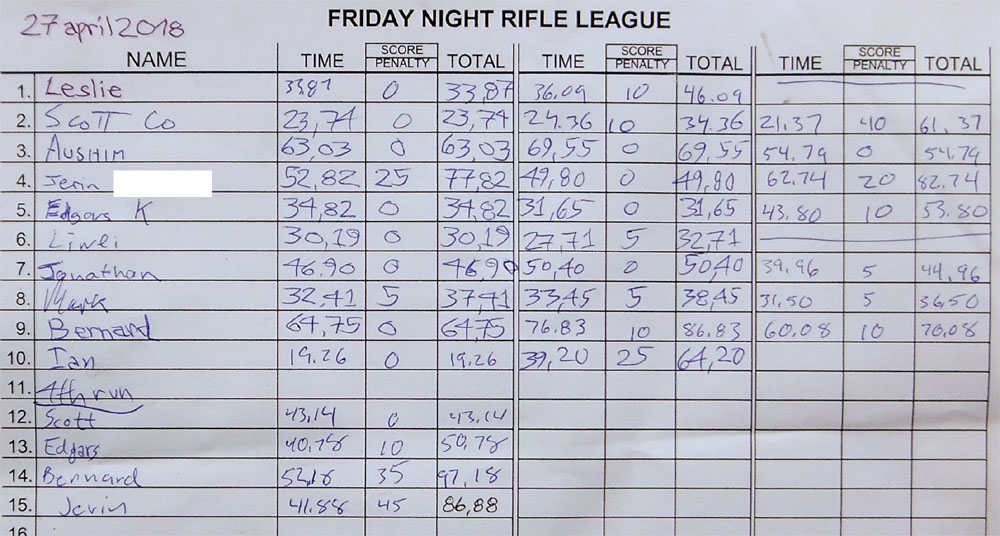 27 april 2018
FRIDAY NIGHT RIFLE LEAGUE
NAME TIME SCORE PENALTY TOTAL TIME SCORE PENALTY TOTAL TIME SCORE PENALTY TOTAL
1. Leslie 33,87 0 33,87 36.09 10 46.09
2. Scott Co 23,74 0 23,74 24.36 10 34.36 21.37 40 61.37
3. Aushim 63,03 0 63,03 69,55 0 69,55 54.79 0 54.79
4. Jerin 52,82 25 77,82 49,80 0 49,80 62.74 20 82.74
5. Edgars K 34,82 0 34,82 31,65 0 31,65 43.80 10 53.80
6. Liwei 30,19 0 30,19 27,71 5 32,71
7. Jonathan 46,90 0 46,90 50,40 0 50,40 39.96 5 44,96
8. Mark 32,41 5 37,41 33,45 5 38,45 31,50 5 36,50
9. Bernard 64,75 0 64,75 76.83 10 86.83 60.08 10 70.08
10. Ian 19.26 0 19.26 39,20 25 64,20
11. 4th run
12. Scott 43,14 0 43,14
13. Edgars 40,78 10 50,78
14. Bernard 35 97,18
15. Jerin 41.88 45 86,88
16.